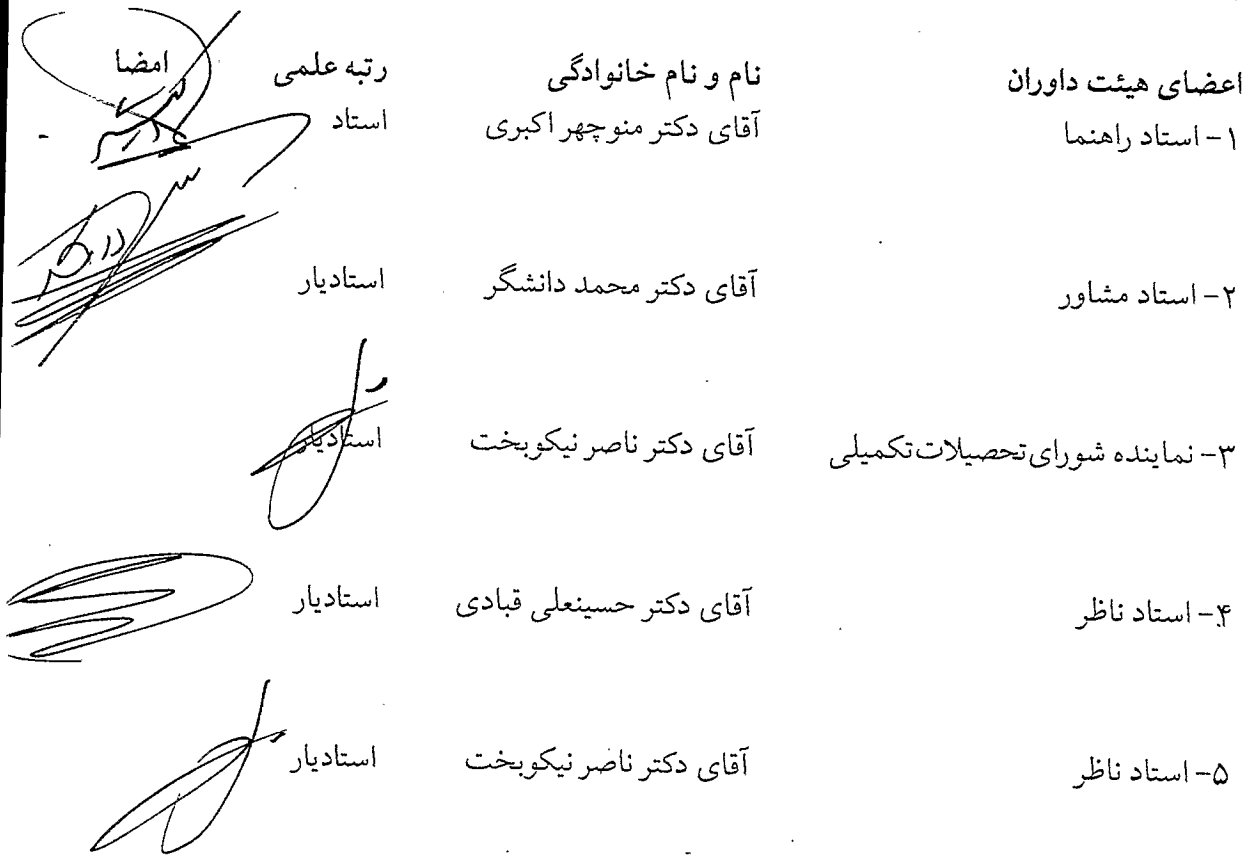 اعضای هیئت داوران نام و نام خانوادگی رتبه علمی امضا
۱- استاد راهنما آقای دکتر منوچهر اکبری استاد
۲- استاد مشاور آقای دکتر محمد دانشگر استادیار
۳- نماینده شورای تحصیلات تکمیلی آقای دکتر ناصر نیکوبخت استادیار
۴- استاد ناظر آقای دکتر حسینعلی قبادی استادیار
۵- استاد ناظر آقای دکتر ناصر نیکوبخت استادیار